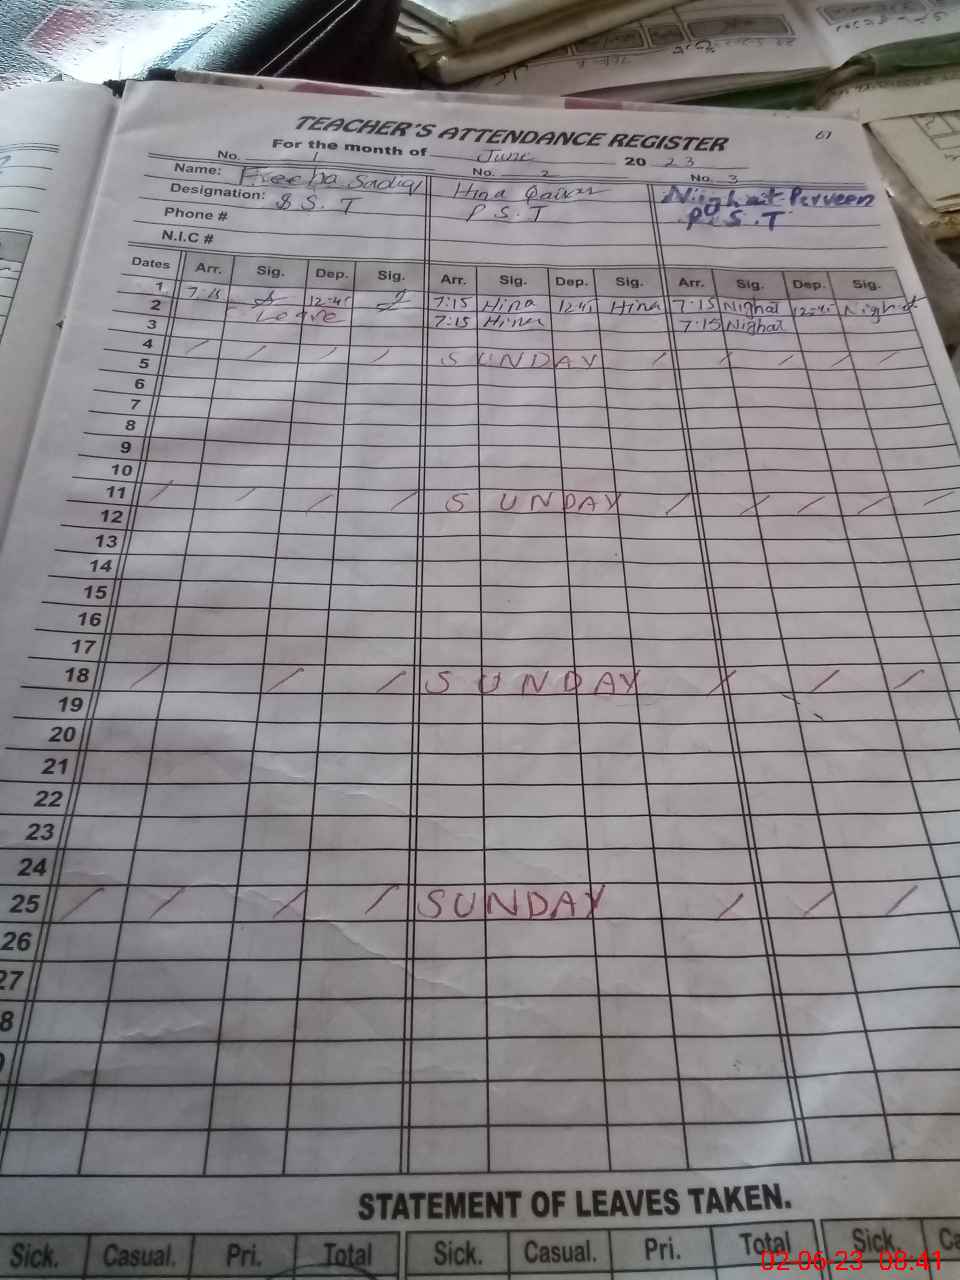 TEACHER'S ATTENDANCE REGISTER
61
For the month of June 20 23
No. 1 No. 2 No. 3
Name: Sadiq Hina Nighat Parveen
Designation: S S. T P. S. T P. S. T
Phone #
N.I.C #
Dates Arr. Sig. Dep. Sig. Arr. Sig. Dep. Sig. Arr. Sig. Dep. Sig.
1 7-15 12-45 7:15 Hina 12:45 Hina 7:15 Nighat 12:45 Nighat
2 Leave 7:15 Hina 7:15 Nighat
3
4 SUNDAY
5
6
7
8
9
10
11 SUNDAY
12
13
14
15
16
17
18 SUNDAY
19
20
21
22
23
24
25 SUNDAY
26
27
8
STATEMENT OF LEAVES TAKEN.
Sick. Casual. Pri. Total Sick. Casual. Pri. Total Sick. Ca
02-06-23 08:41